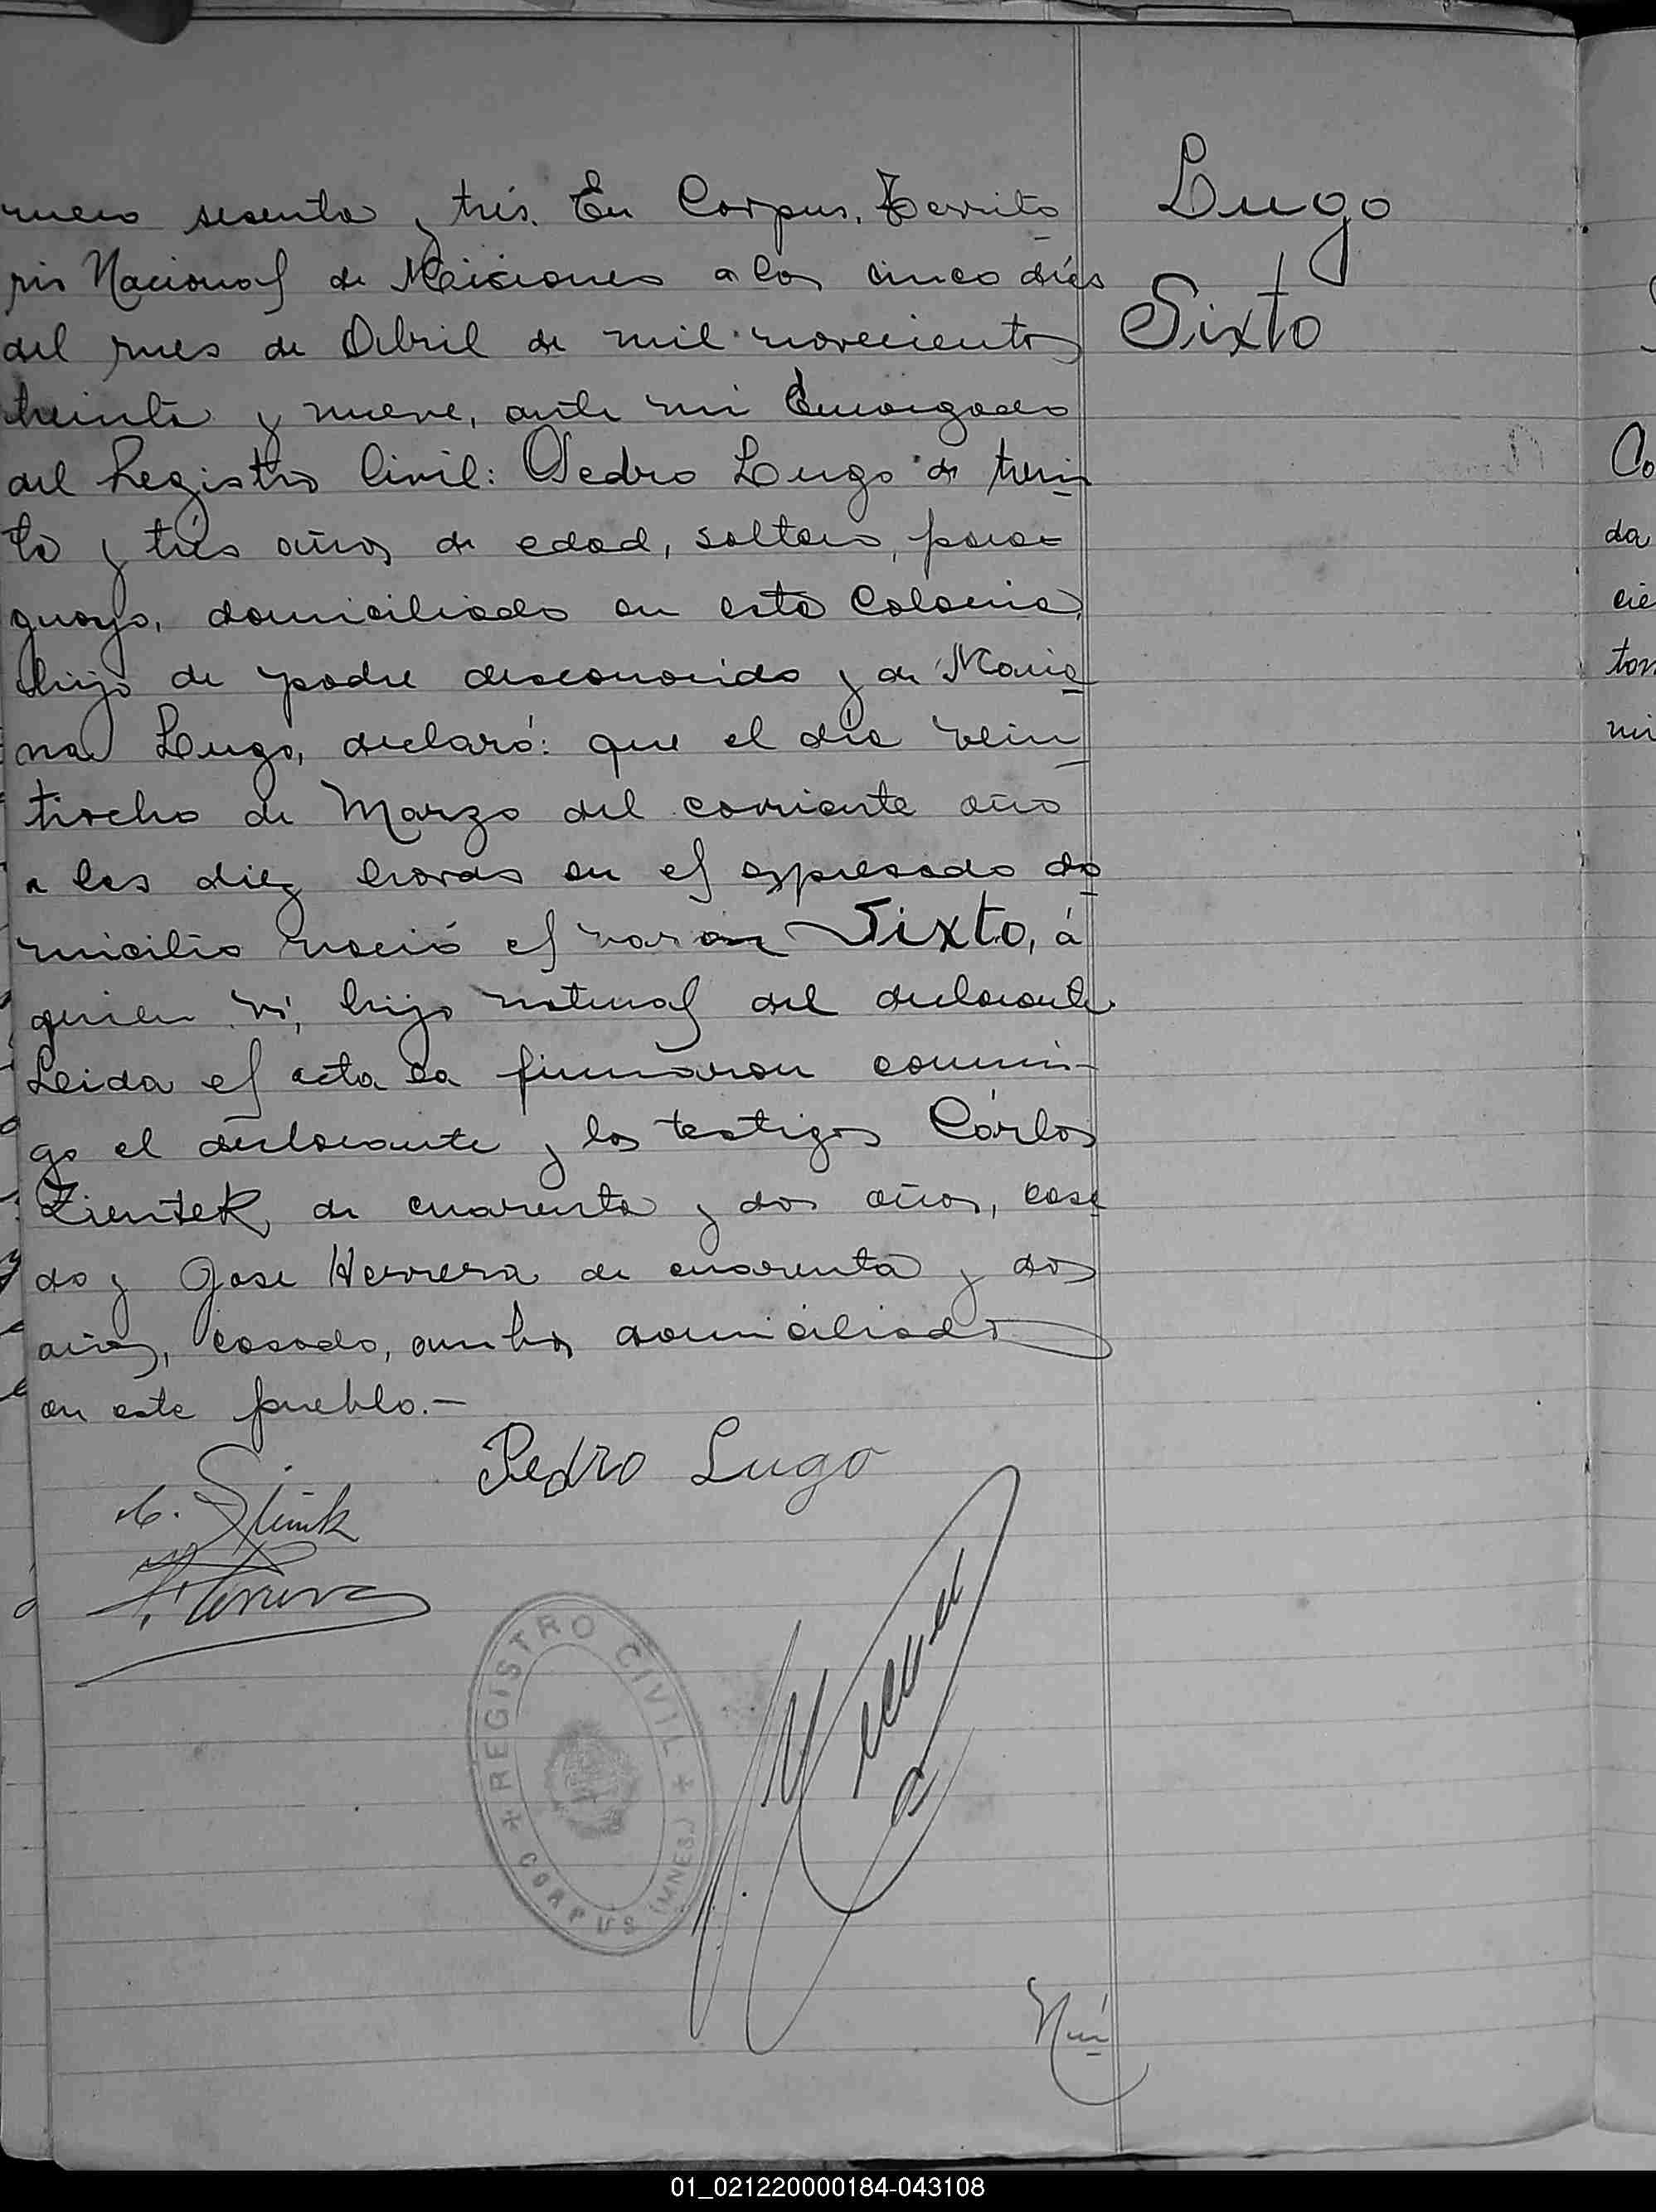 mero sesenta y trés. En Corpus, Territo
rio Nacional de Misiones a los cinco días
del mes de Abril de mil novecientos
treinta y nueve, ante mi Encargado
del Registro Civil: Pedro Lugo de trein
ta y trés años de edad, soltero, para=
guayo, domiciliado en esta Colonia,
hijo de padre desconocido y de Maria
na Lugo, declaró: que el día vein
tiocho de Marzo del corriente año
a las diez horas en el expresado do
micilio nació el varon Sixto, á
quien vi, hijo natural del declarante.
Leida el acta la firmaron conmi-
go el declarante y los testigos Cárlos
Zientek, de cuarenta y dos años, casa
do y Jose Herrera de cuarenta y dos
años, casado, ambos domiciliados
en este pueblo.-
Lugo
Sixto
Pedro Lugo
Herrera
REGISTRO CIVIL
* CORPUS (MNES.) *
Nú
Co
da
cie
ton
mi
01_021220000184-043108